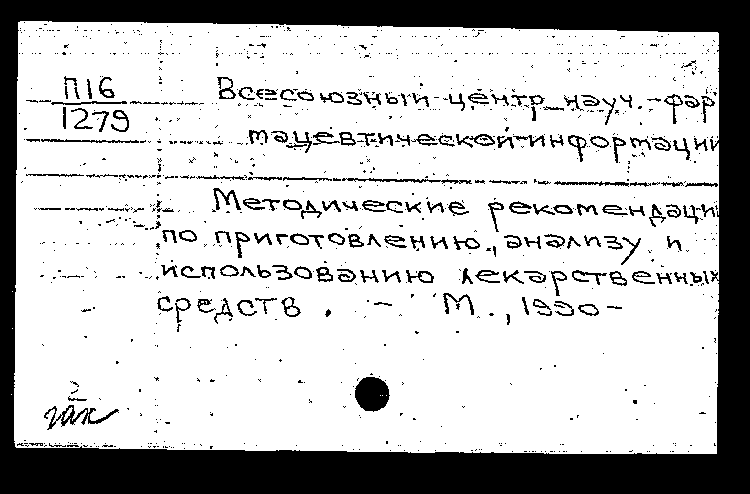 П16
1279
Всесоюзный центр науч.-фар
мацевтической информации
Методические рекомендаци
по приготовлению, анализу и
использованию лекарственных
средств. - М., 1990-
2